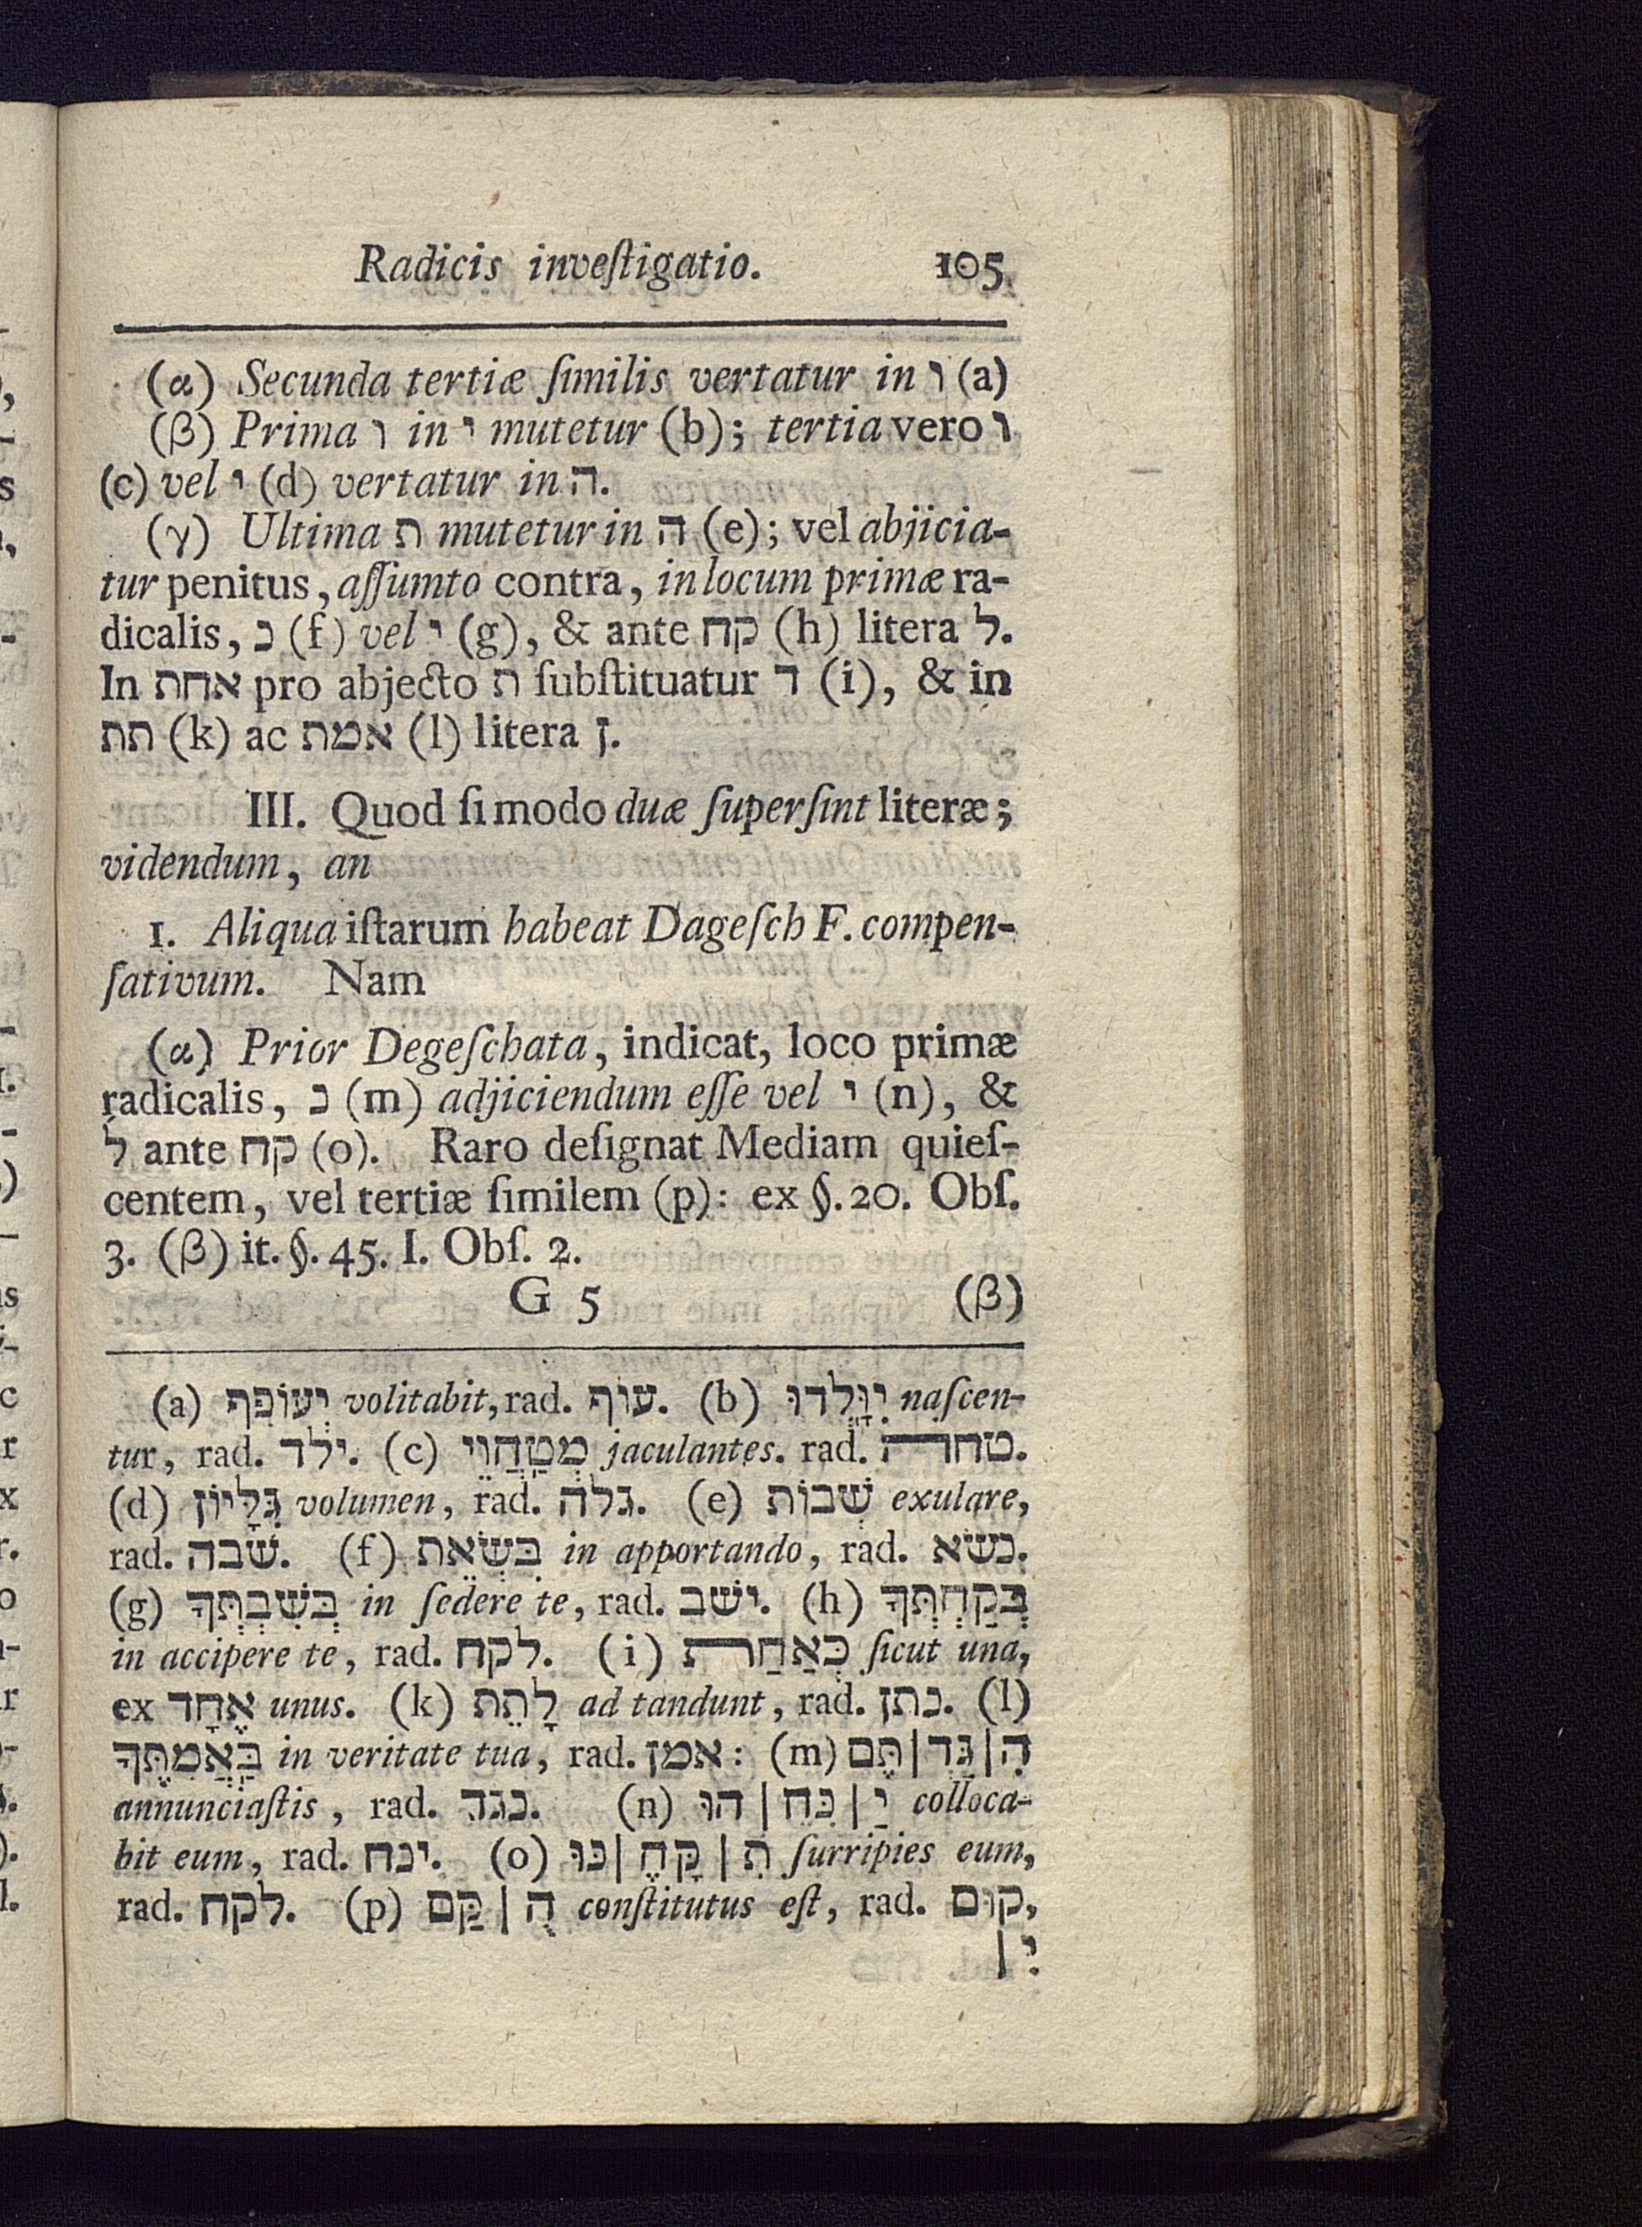 Radicis inveſtigatio. 105
(α) Secunda tertiæ ſimilis vertatur in ו (a)
(β) Prima ו in י mutetur (b); tertia vero ו
(c) vel י (d) vertatur in ה.
(γ) Ultima ת mutetur in ה (e); vel abjicia-
tur penitus, aſſumto contra, in locum primæ ra-
dicalis, נ (f) vel י (g), & ante קח (h) litera ל.
In אחת pro abjecto ת ſubſtituatur ד (i), & in
תת (k) ac אמת (l) litera ן.
III. Quod ſi modo duæ ſuperſint literæ;
videndum, an
1. Aliqua iſtarum habeat Dageſch F. compen-
ſativum. Nam
(α) Prior Degeſchata, indicat, loco primæ
radicalis, נ (m) adjiciendum eſſe vel י (n), &
ל ante קח (o). Raro deſignat Mediam quieſ-
centem, vel tertiæ ſimilem (p): ex §. 20. Obſ.
3. (β) it. §. 45. I. Obſ. 2.
G 5 (β)
(a) יְעוֹפֵף volitabit, rad. עוף. (b) יִוָּלְדוּ naſcen-
tur, rad. ילד. (c) מְטַחֲוֵי jaculantes. rad. טחה.
(d) גִּלָּיוֹן volumen, rad. גלה. (e) שְׁבוֹת exulare,
rad. שׁבה. (f) בִּשְׂאֵת in apportando, rad. נשׂא.
(g) בְּשִׁבְתְּךָ in ſedere te, rad. ישׁב. (h) בְּקַחְתְּךָ
in accipere te, rad. לקח. (i) כְּאַחַת ſicut una,
ex אֶחָד unus. (k) לָתֵת ad tandunt, rad. נתן. (l)
בַּאֲמִתֶּךָ in veritate tua, rad. אמן: (m) הִ|גַּדְ|תֶּם
annunciaſtis, rad. נגד. (n) יַ|נִּחֵ|הוּ colloca-
bit eum, rad. ינח. (o) תִ|קָּחֶ|נּוּ ſurripies eum,
rad. לקח. (p) הֻ|קַּם conſtitutus eſt, rad. קום,
יִ|